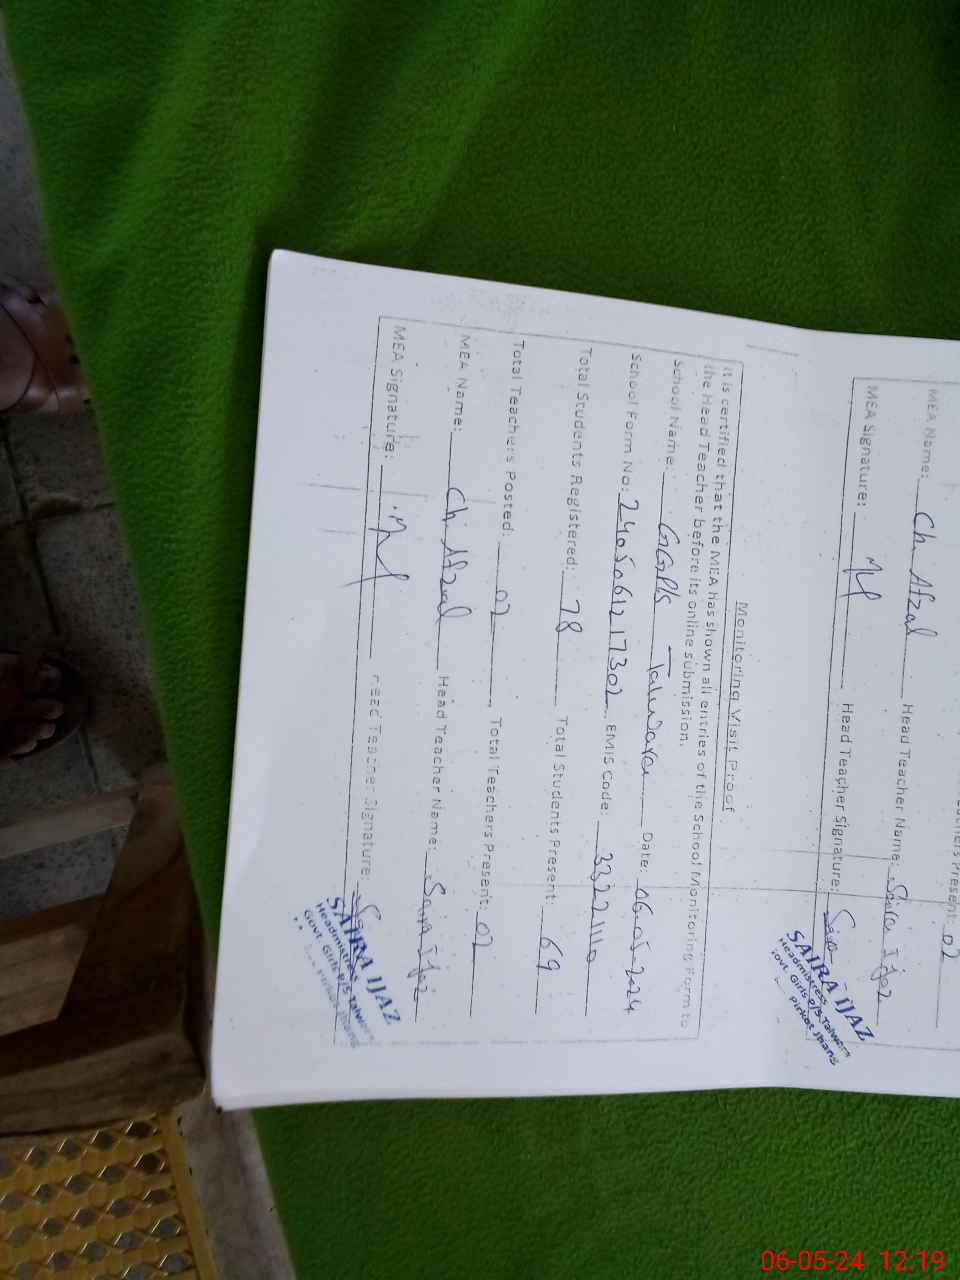 Teachers Present: 02
MEA Name: Ch. Afzal Head Teacher Name: Saira Ijaz
MEA Signature: Head Teacher Signature: Saira
SAIRA IJAZ
Headmistress
Govt. Girls P/S Talwara
Pirkot Jhang
Monitoring Visit Proof
It is certified that the MEA has shown all entries of the School Monitoring Form to
the Head Teacher before its online submission.
School Name: GGP/s Talwara Date: 06-05-2024
School Form No: 2405061217302 EMIS Code: 33221110
Total Students Registered: 78 Total Students Present: 69
Total Teachers Posted: 02 Total Teachers Present: 02
MEA Name: Ch. Afzal Head Teacher Name: Saira Ijaz
MEA Signature: Head Teacher Signature:
SAIRA IJAZ
Headmistress
Govt. Girls P/S Talwara
06-05-24 12:19